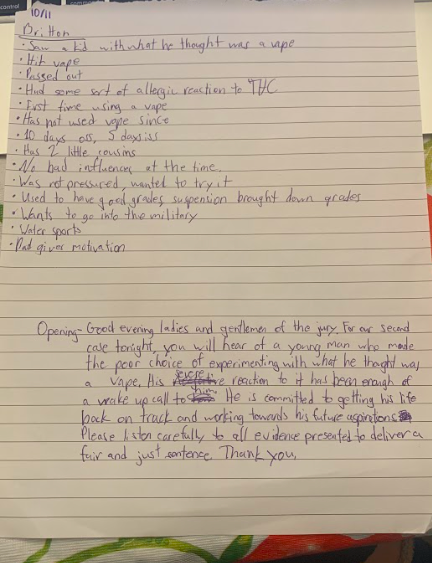 control
10/11
Britton
• Saw a kid with what he thought was a vape
• Hit vape
• Passed out
• Had some sort of allergic reaction to THC
• First time using a vape
• Has not used vape since
• 10 days oss, 5 days iss
• Has 2 little cousins
• No bad influences at the time
• Was not pressured, wanted to try it
• Used to have good grades, suspension brought down grades
• Wants to go into the military
• Water sports
• Dad gives motivation
Opening- Good evening ladies and gentlemen of the jury. For our second
case tonight, you will hear of a young man who made
the poor choice of experimenting with what he thought was
a vape. His severe reaction to it has been enough of
a wake up call to him. He is committed to getting his life
back on track and working towards his future aspirations.
Please listen carefully to all evidence presented to deliver a
fair and just sentence. Thank you.